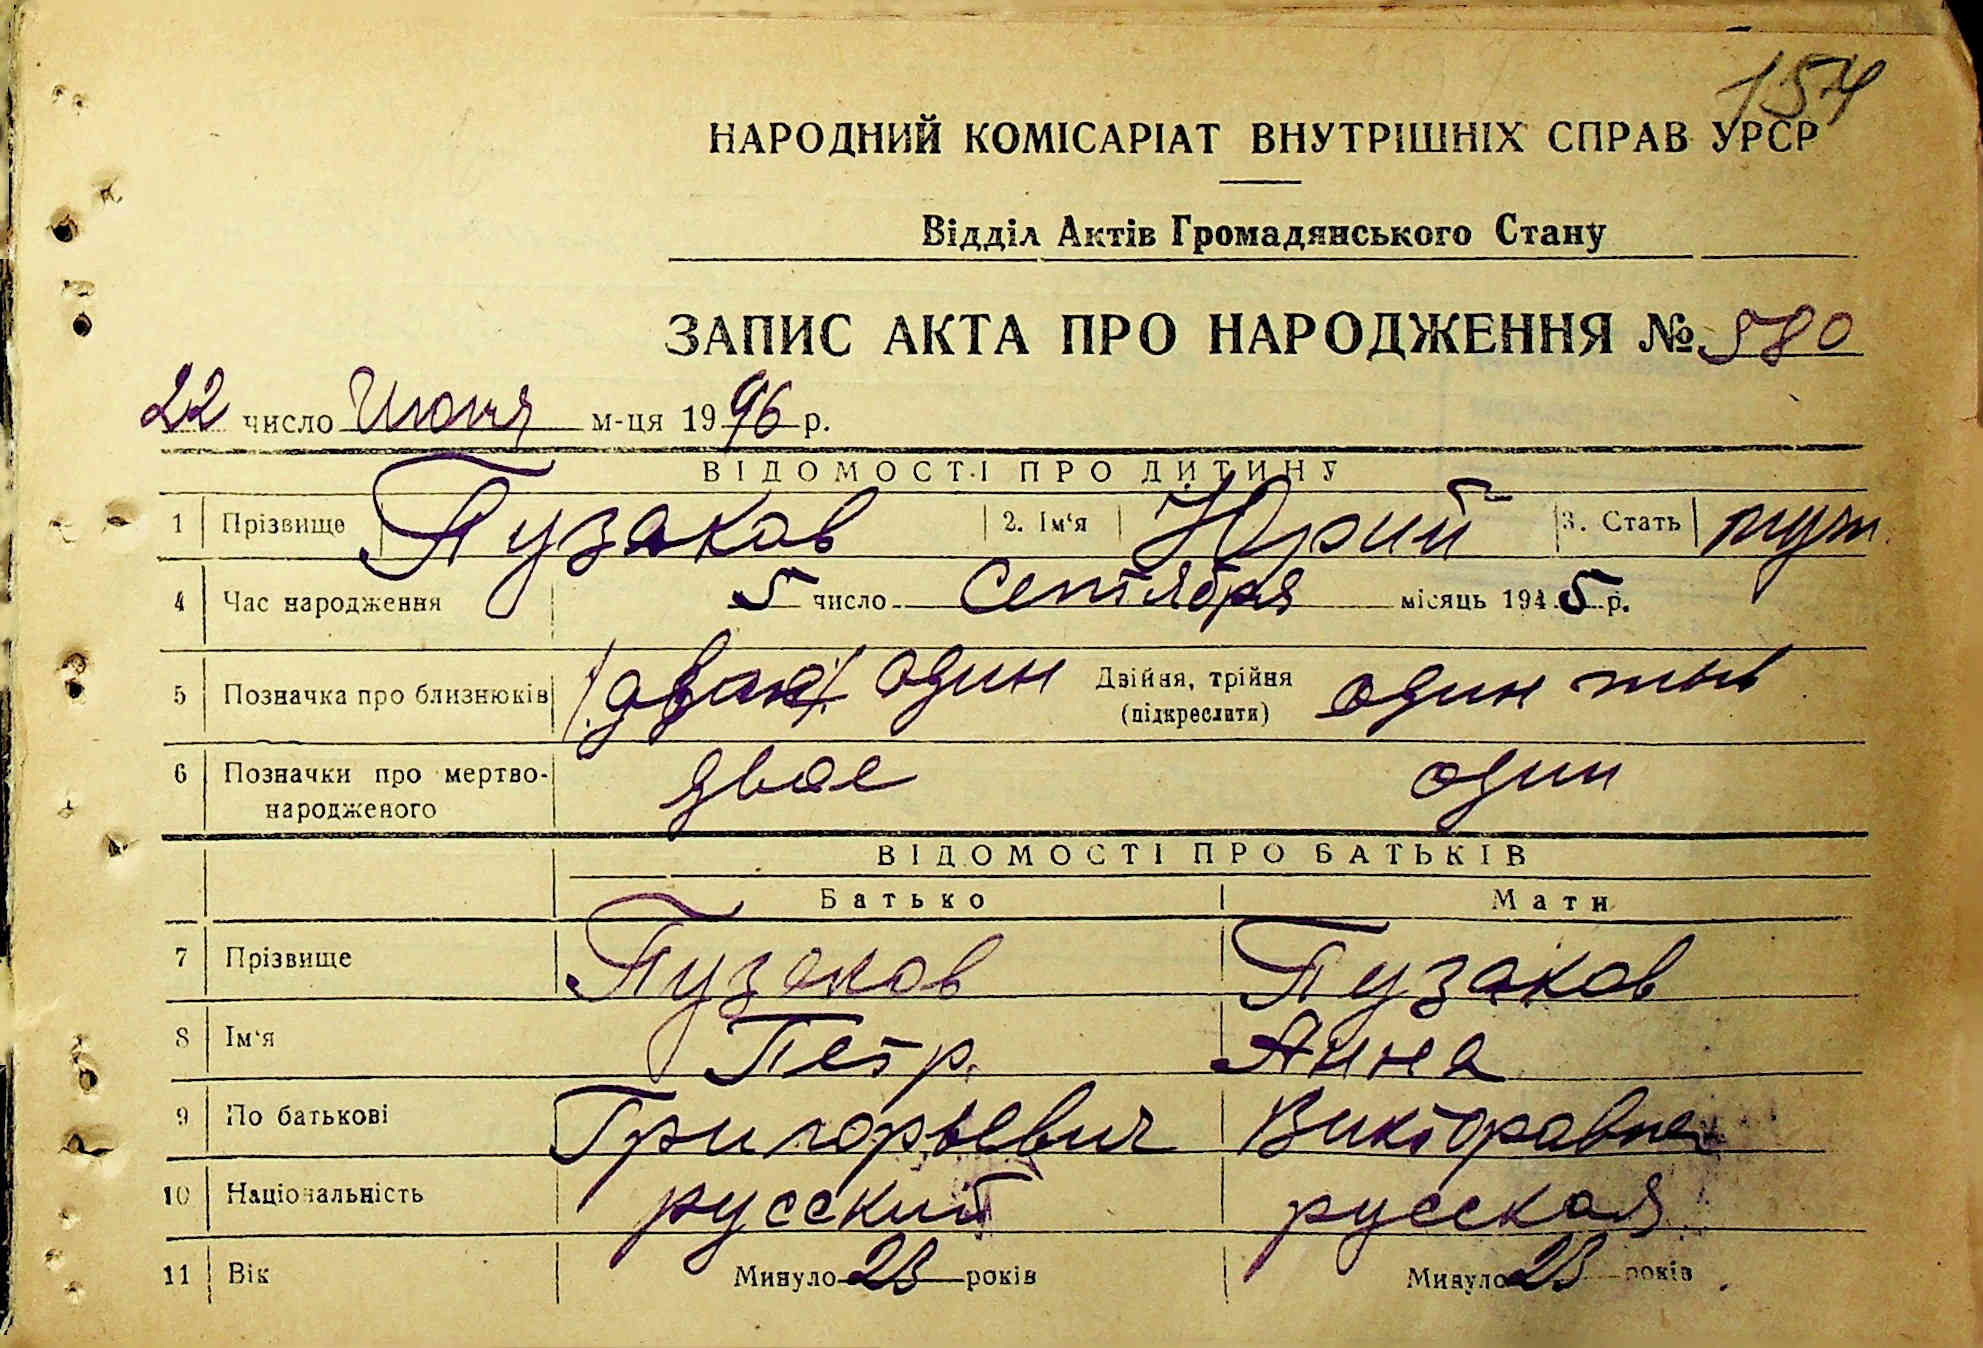 154
НАРОДНИЙ КОМІСАРІАТ ВНУТРІШНІХ СПРАВ УРСР
Відділ Актів Громадянського Стану
ЗАПИС АКТА ПРО НАРОДЖЕННЯ № 580
22 число Июня м-ця 1946 р.
ВІДОМОСТІ ПРО ДИТИНУ
1 Прізвище Пузаков 2. Ім'я Юрий 3. Стать муж.
4 Час народження 5 число Сентября місяць 1945 р.
5 Позначка про близнюків один Двійня, трійня один
(підкреслити)
6 Позначки про мертво- двое один
народженого
ВІДОМОСТІ ПРО БАТЬКІВ
Батько Мати
7 Прізвище Пузаков Пузаков
8 Ім'я Петр. Анна
9 По батькові Григорьевич Викторавна
10 Національність русский русская
11 Вік Минуло 23 років Минуло 23 років